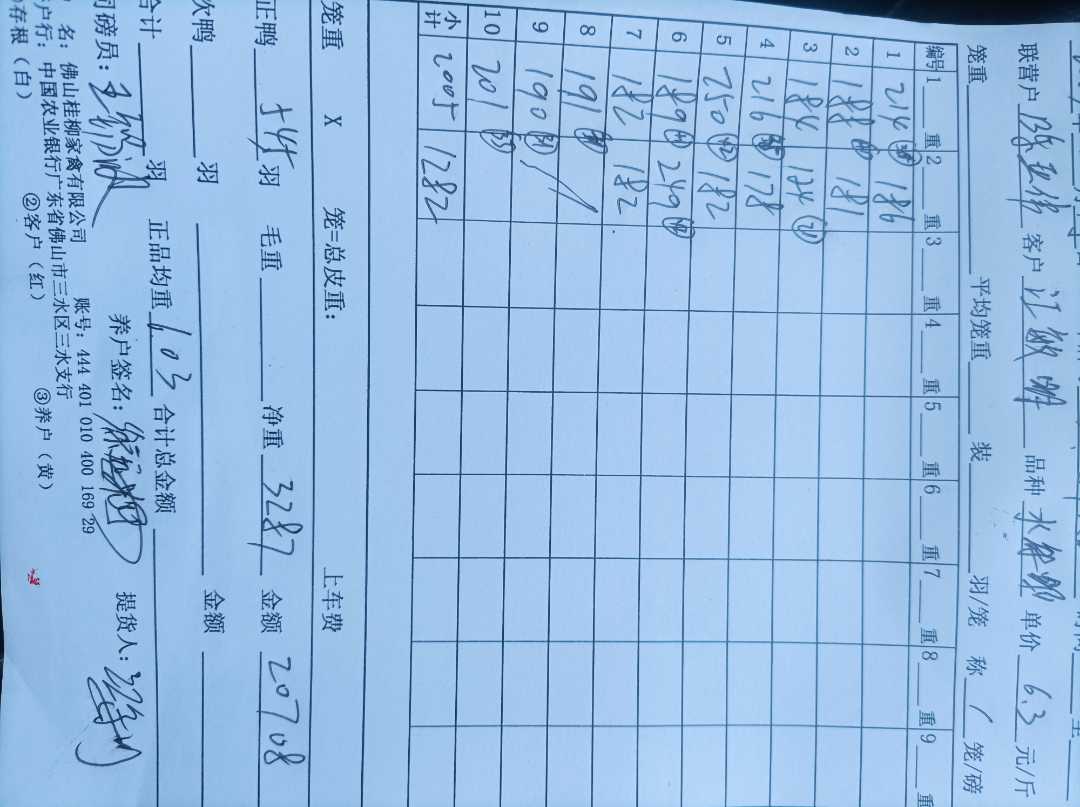 联营户 客户 江敏明 品种 水鸭 单价 6.3 元/斤
笼重 平均笼重 装 羽/笼 称 1 笼/磅
编号 1 重 2 重 3 重 4 重 5 重 6 重 7 重 8 重 9 重
1 214 186
2 188 181
3 184 124 (21)
4 216 178
5 250 182
6 189 249
7 182 182
8 191
9 190
10 201
小计 2005 1282
笼重 X 笼=总皮重: 上车费
正鸭 545 羽 毛重 净重 3287 金额 20708
次鸭 羽 金额
合计 羽 正品均重 6.03 合计总金额
司磅员: 养户签名: 提货人:
名: 佛山桂柳家禽有限公司 账号: 444 401 010 400 169 29
户行: 中国农业银行广东省佛山市三水区三水支行
存根(白) ②客户(红) ③养户(黄)